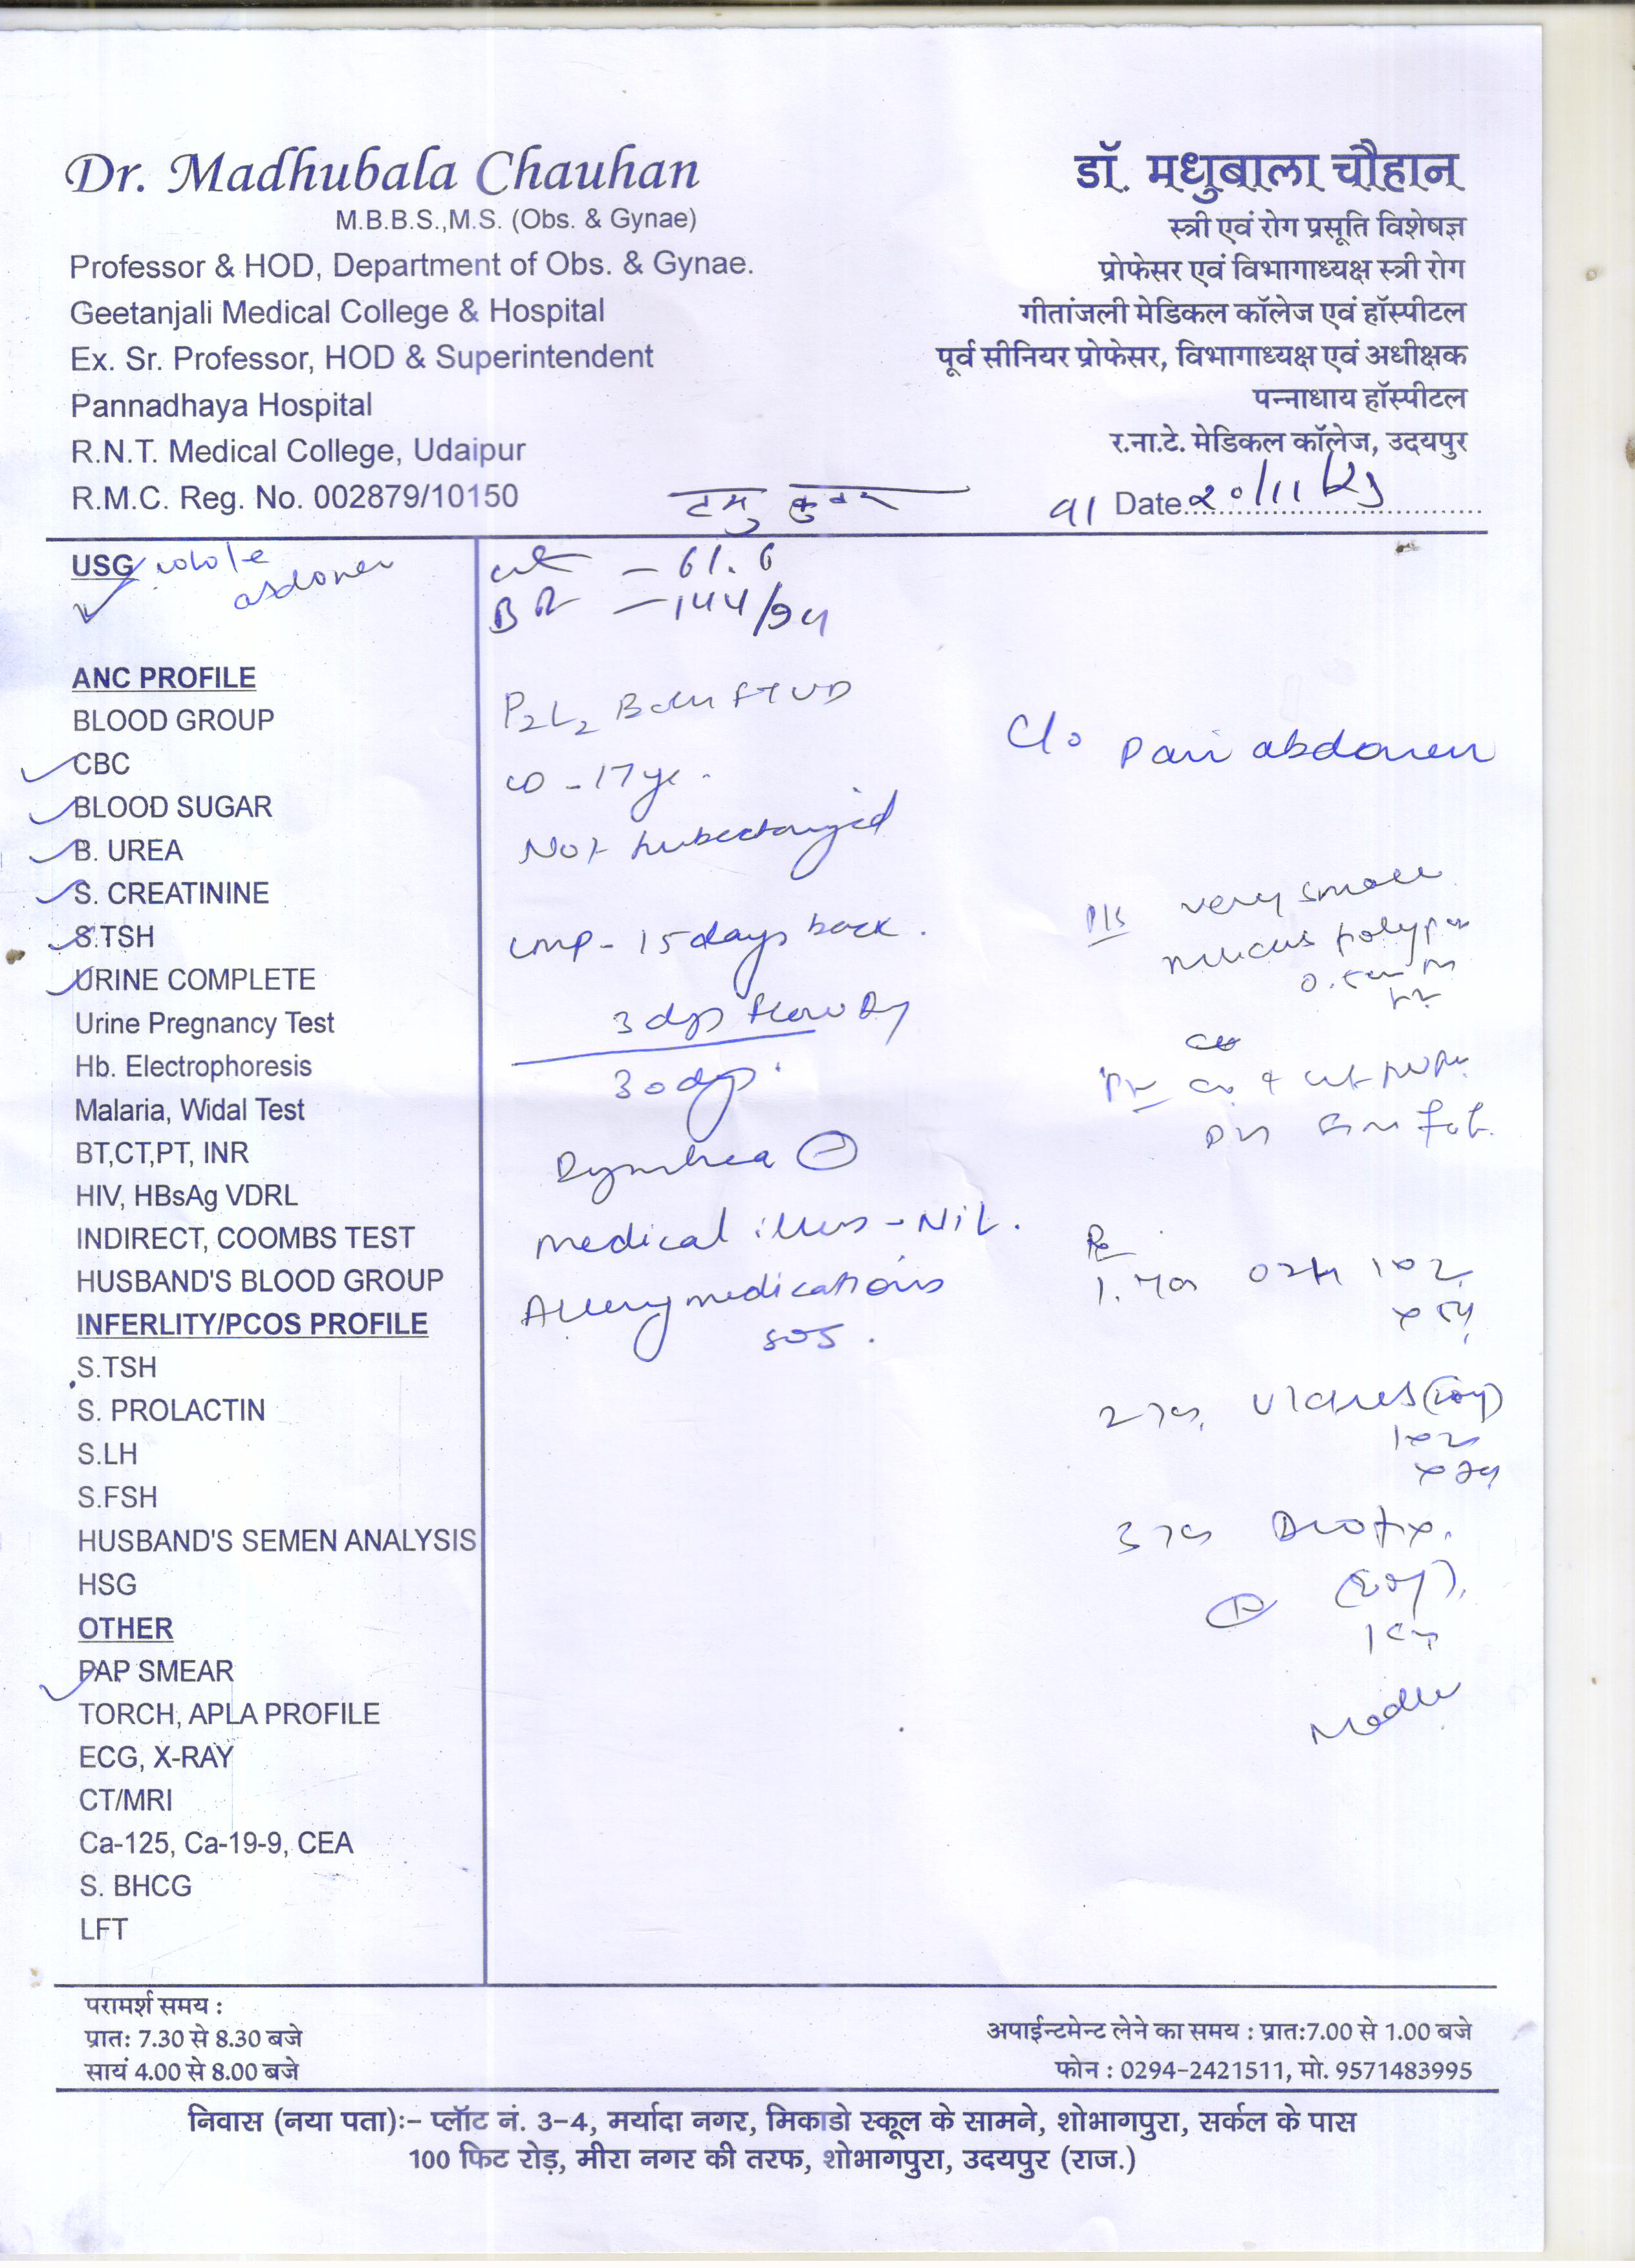 Dr. Madhubala Chauhan
M.B.B.S.,M.S. (Obs. & Gynae)
Professor & HOD, Department of Obs. & Gynae.
Geetanjali Medical College & Hospital
Ex. Sr. Professor, HOD & Superintendent
Pannadhaya Hospital
R.N.T. Medical College, Udaipur
R.M.C. Reg. No. 002879/10150
डॉ. मधुबाला चौहान
स्त्री एवं रोग प्रसूति विशेषज्ञ
प्रोफेसर एवं विभागाध्यक्ष स्त्री रोग
गीतांजली मेडिकल कॉलेज एवं हॉस्पीटल
पूर्व सीनियर प्रोफेसर, विभागाध्यक्ष एवं अधीक्षक
पन्नाधाय हॉस्पीटल
र.ना.टे. मेडिकल कॉलेज, उदयपुर
Date 20/11/23
USG whole
abdomen
ANC PROFILE
BLOOD GROUP
CBC
BLOOD SUGAR
B. UREA
S. CREATININE
S.TSH
URINE COMPLETE
Urine Pregnancy Test
Hb. Electrophoresis
Malaria, Widal Test
BT,CT,PT, INR
HIV, HBsAg VDRL
INDIRECT, COOMBS TEST
HUSBAND'S BLOOD GROUP
INFERLITY/PCOS PROFILE
S.TSH
S. PROLACTIN
S.LH
S.FSH
HUSBAND'S SEMEN ANALYSIS
HSG
OTHER
PAP SMEAR
TORCH, APLA PROFILE
ECG, X-RAY
CT/MRI
Ca-125, Ca-19-9, CEA
S. BHCG
LFT
wt - 61.6
BP - 144/94
P2L2 Both FTVD
LD - 17 yr.
Not tubectomized
LMP - 15 days back.
3 days flow
30 days.
medical illness - NiL.
Allergy medications
SOS.
C/o Pain abdomen
P/S very small
mucus polyp
Rx
1.
2
3
परामर्श समय :
प्रातः 7.30 से 8.30 बजे
सायं 4.00 से 8.00 बजे
अपाईन्टमेन्ट लेने का समय : प्रातः7.00 से 1.00 बजे
फोन : 0294-2421511, मो. 9571483995
निवास (नया पता):– प्लॉट नं. 3-4, मर्यादा नगर, मिकाडो स्कूल के सामने, शोभागपुरा, सर्कल के पास
100 फिट रोड़, मीरा नगर की तरफ, शोभागपुरा, उदयपुर (राज.)